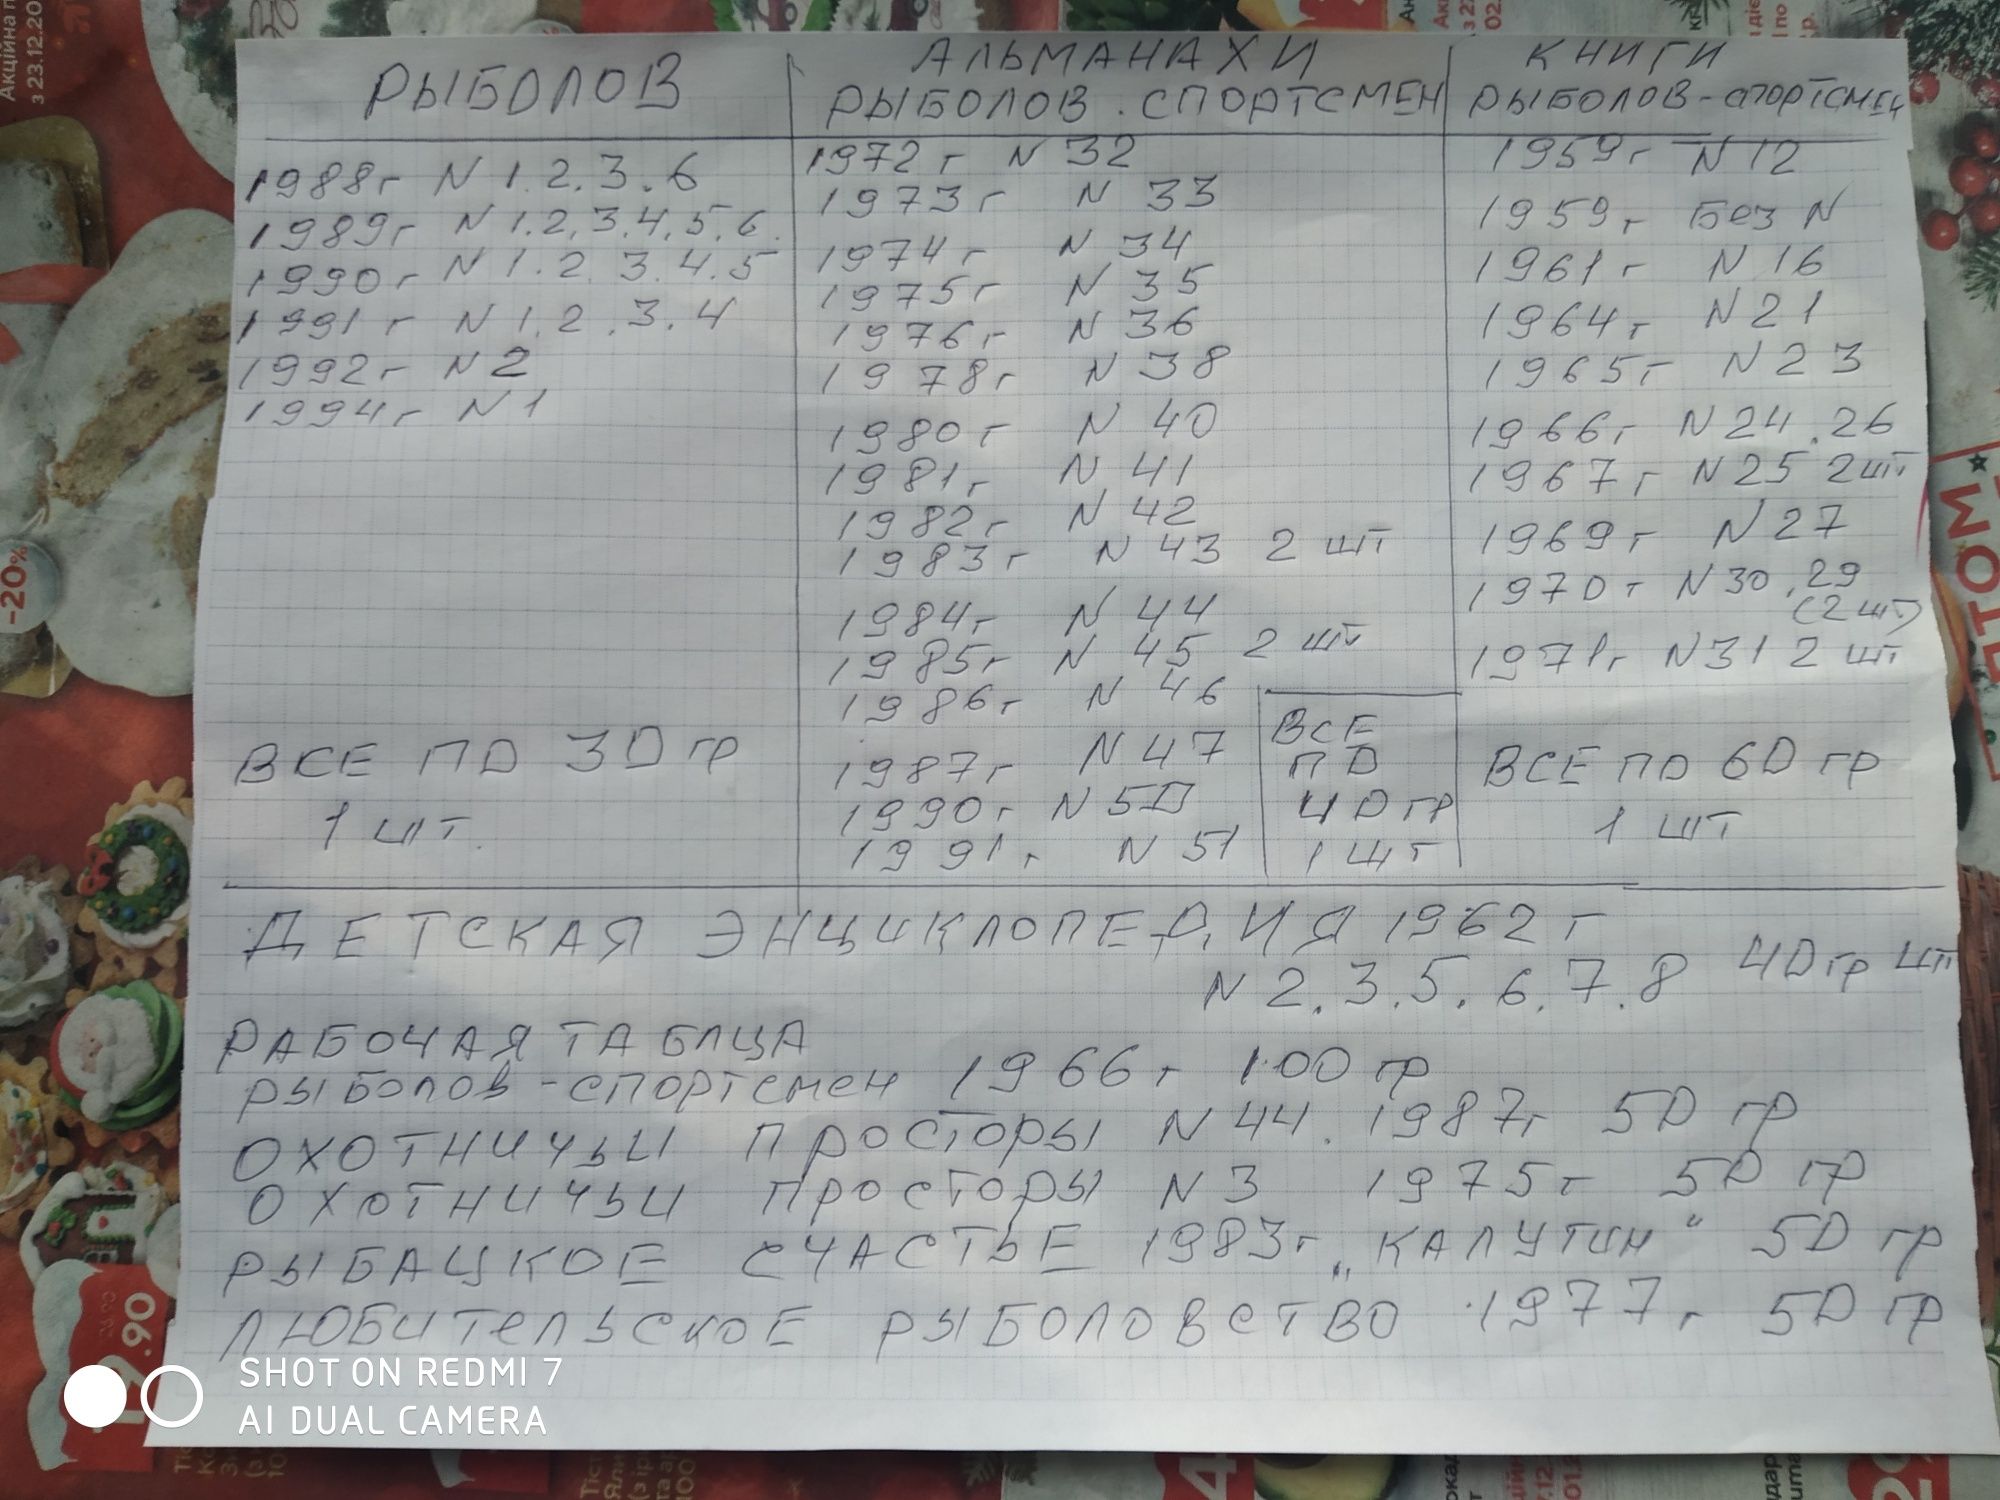 РЫБОЛОВ
1988г N 1.2.3.6
1989г N 1.2,3,4,5,6.
1990г N 1.2.3.4.5
1991г N 1.2.3.4
1992г N 2
1994г N 1
ВСЕ ПО 30 гр
1 шт.
АЛЬМАНАХИ
РЫБОЛОВ.СПОРТСМЕН
1972г N 32
1973г N 33
1974г N 34
1975г N 35
1976г N 36
1978г N 38
1980г N 40
1981г N 41
1982г N 42
1983г N 43 2 шт
1984г N 44
1985г N 45 2 шт
1986г N 46
1987г N 47
1990г N 50
1991г N 51
ВСЕ
ПО
40 гр
1 шт
КНИГИ
РЫБОЛОВ-спортсмен
1959г N 12
1959г Без N
1961г N 16
1964г N 21
1965г N 23
1966г N 24.26
1967г N 25 2 шт
1969г N 27
1970г N 30,29
(2 шт)
1971г N 31 2 шт
ВСЕ ПО 60 гр
1 шт
ДЕТСКАЯ ЭНЦИКЛОПЕДИЯ 1962 г
N 2.3.5.6.7.8 40 гр шт
РАБОЧАЯ ТАБЛЦА
рыболов-спортсмен 1966г 100 гр
ОХОТНИЧЬИ ПРОСТОРЫ N 44. 1987г 50 гр
ОХОТНИЧЬИ ПРОСТОРЫ N 3 1975г 50 гр
РЫБАЦКОЕ СЧАСТЬЕ 1983г „КАЛУТИН“ 50 гр
ЛЮБИТЕЛЬСКОЕ РЫБОЛОВСТВО 1977г 50 гр
SHOT ON REDMI 7
AI DUAL CAMERA
Акційна
з 23.12.20
-20%
9.90
ПТОМ